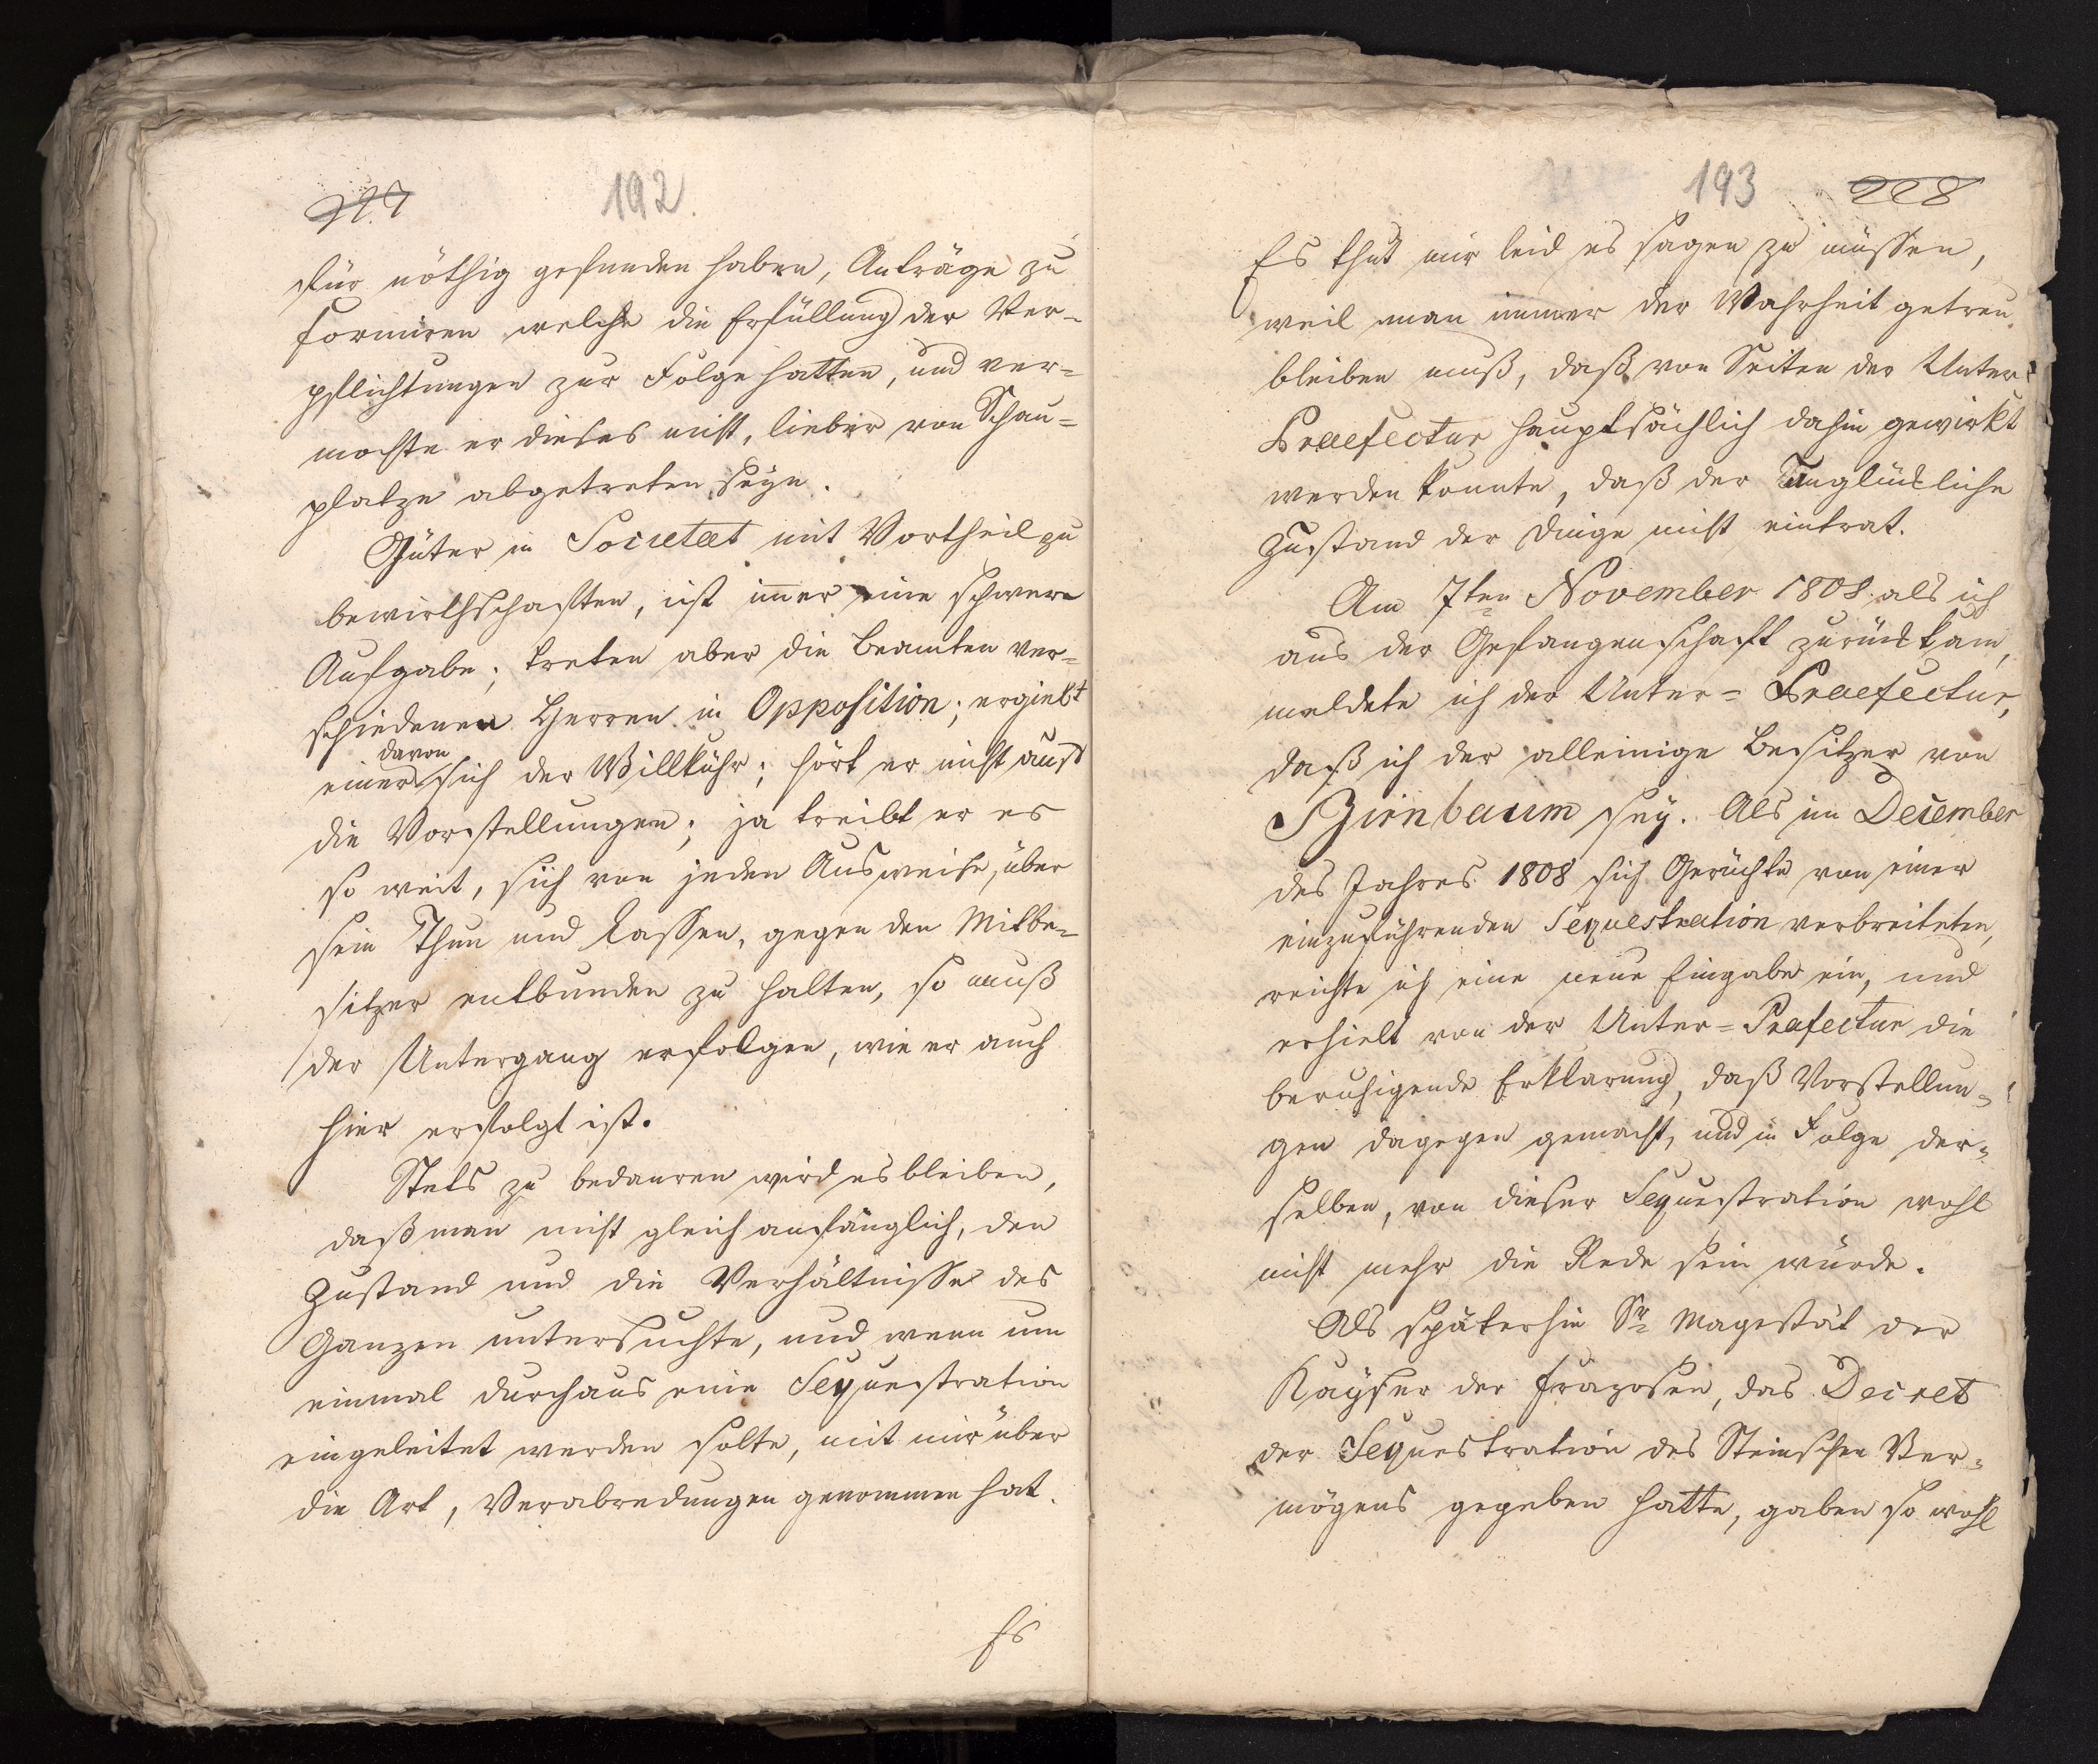 227
192.
für nöthig gefunden haben, Anträge zu
formiren welche die Erfüllung der Ver-
pflichtungen zur Folge hatten, und ver-
mochte er dieses nicht, lieber von Schau-
platze abgetreten seyn.
Güter in Societaet mit Vortheil zu
bewirthschaften, ist imer eine schwere
Aufgabe; treten aber die Beamten ver-
schiedenen Herren in Opposition; ergiebt
davon
einer sich der Willkühr; hört er nicht auf
die Vorstellungen; ja treibt er es
so weit, sich von jeden Ausweise, über
sein Thun und Lassen, gegen den Mitbe-
sitzer entbunden zu halten, so muß
der Untergang erfolgen, wie er auch
hier erfolgt ist.
Stets zu bedauren wird es bleiben,
daß man nicht gleich anfänglich, den
Zustand und die Verhältnisse des
Ganzen untersuchte, und wenn um
einmal durchaus eine Sequestration
eingeleitet werden solte, mit mir über
die Art, Verabredungen genommen hat.
Es
193
228
Es thut mir leid es sagen zu müssen,
weil man immer der Wahrheit getreu
bleiben muß, daß von Seiten der Unter-
Praefectur hauptsächlich dahin gewirkt
werden konnte, daß der unglückliche
Zustand der Dinge nicht eintrat.
Am 7ten November 1808 als ich
aus der Gefangenschaft zurück kam,
meldete ich der Unter-Praefectur,
daß ich der alleinige Besitzer von
Birnbaum sey. Als im December
des Jahres 1808 sich Gerüchte von einer
einzuführenden Sequestration verbreiteten,
reichte ich eine neue Eingabe ein, und
erhielt von der Unter-Prafectur die
beruhigende Erklarung, daß Vorstellun-
gen dagegen gemacht, und in Folge der-
selben, von dieser Sequestration wohl
nicht mehr die Rede sein würde.
Als späterhin Sr Magestät der
Kayser der Franzosen, das Decret
der Sequestration des Steinschen Ver-
mögens gegeben hatte, gaben so wohl